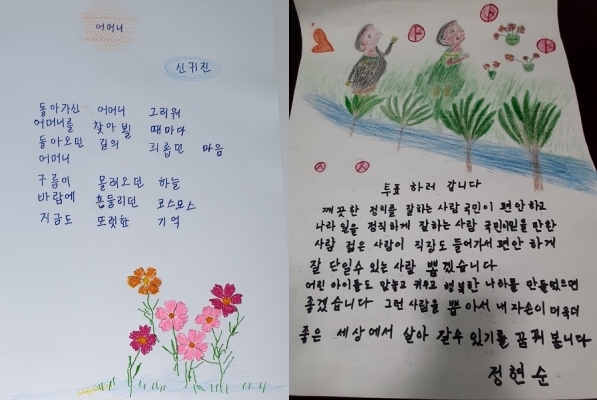 어머니
신귀진
돌아가신 어머니 그리워
어머니를 찾아 뵐 때마다
돌아오던 길의 괴롭던 마음
어머니
구름이 몰려오던 하늘
바람에 흔들리던 코스모스
지금도 또렷한 기억
투표 하러 갑니다
깨끗한 정치를 잘하는 사람 국민이 편안하고
나라 일을 정직하게 잘하는 사람 국민이 믿을 만한
사람 젊은 사람이 직장도 들어가서 편안 하게
잘 단일수 있는 사람 뽑겠습니다
어린 아이들도 맘놓고 키우고 행복한 나라를 만들었으면
좋겠습니다 그런 사람을 뽑아서 내 자손이 더욱더
좋은 세상에서 살아 갈수 있기를 꿈꿔 봅니다
정현순